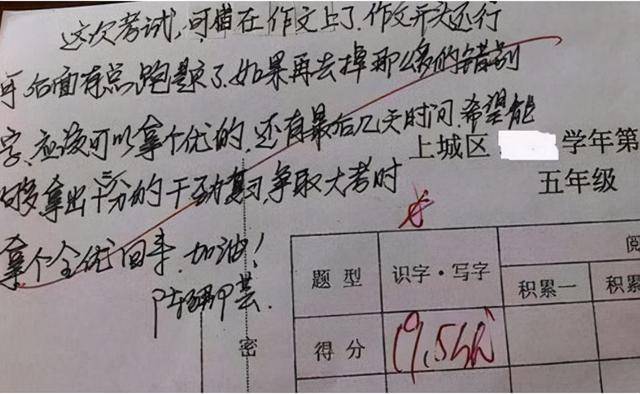 这次考试,可惜在作文上了.作文开头还行
可后面有点跑题了.如果再去掉那么多的错别
字,应该可以拿个优的.还有最后几天时间.希望能
够拿出十二分的干劲复习争取大考时
拿个全优回来.加油!
上城区 学年第
五年级
题 型 识字·写字 阅
积累一 积累
得 分 19.5
密